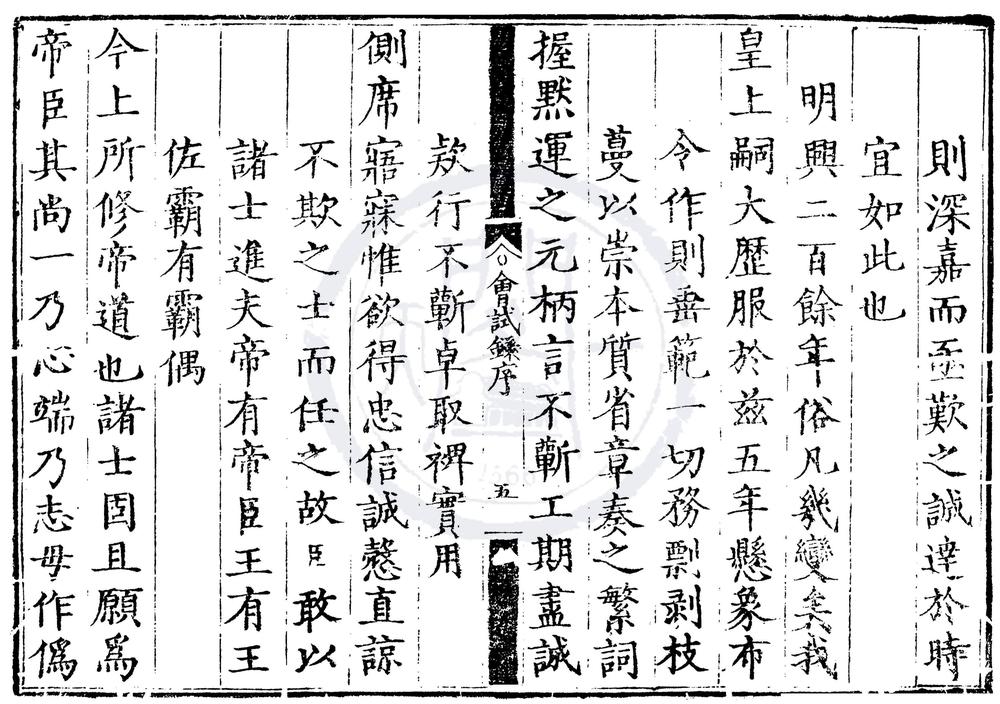 則深嘉而亟歎之誠達於時
宜如此也
明興二百餘年俗凡幾變矣我
皇上嗣大歷服於兹五年懸象布
令作則垂範一切務剽剥枝
蔓以崇本質省章奏之繁詞
握默運之元柄言不蘄工期盡誠
欵行不蘄卓取裨實用
側席寤寐惟欲得忠信誠慤直諒
不欺之士而任之故臣敢以
諸士進夫帝有帝臣王有王
佐霸有霸偶
今上所修帝道也諸士固且願爲
帝臣其尚一乃心端乃志毋作僞
會試錄序
五